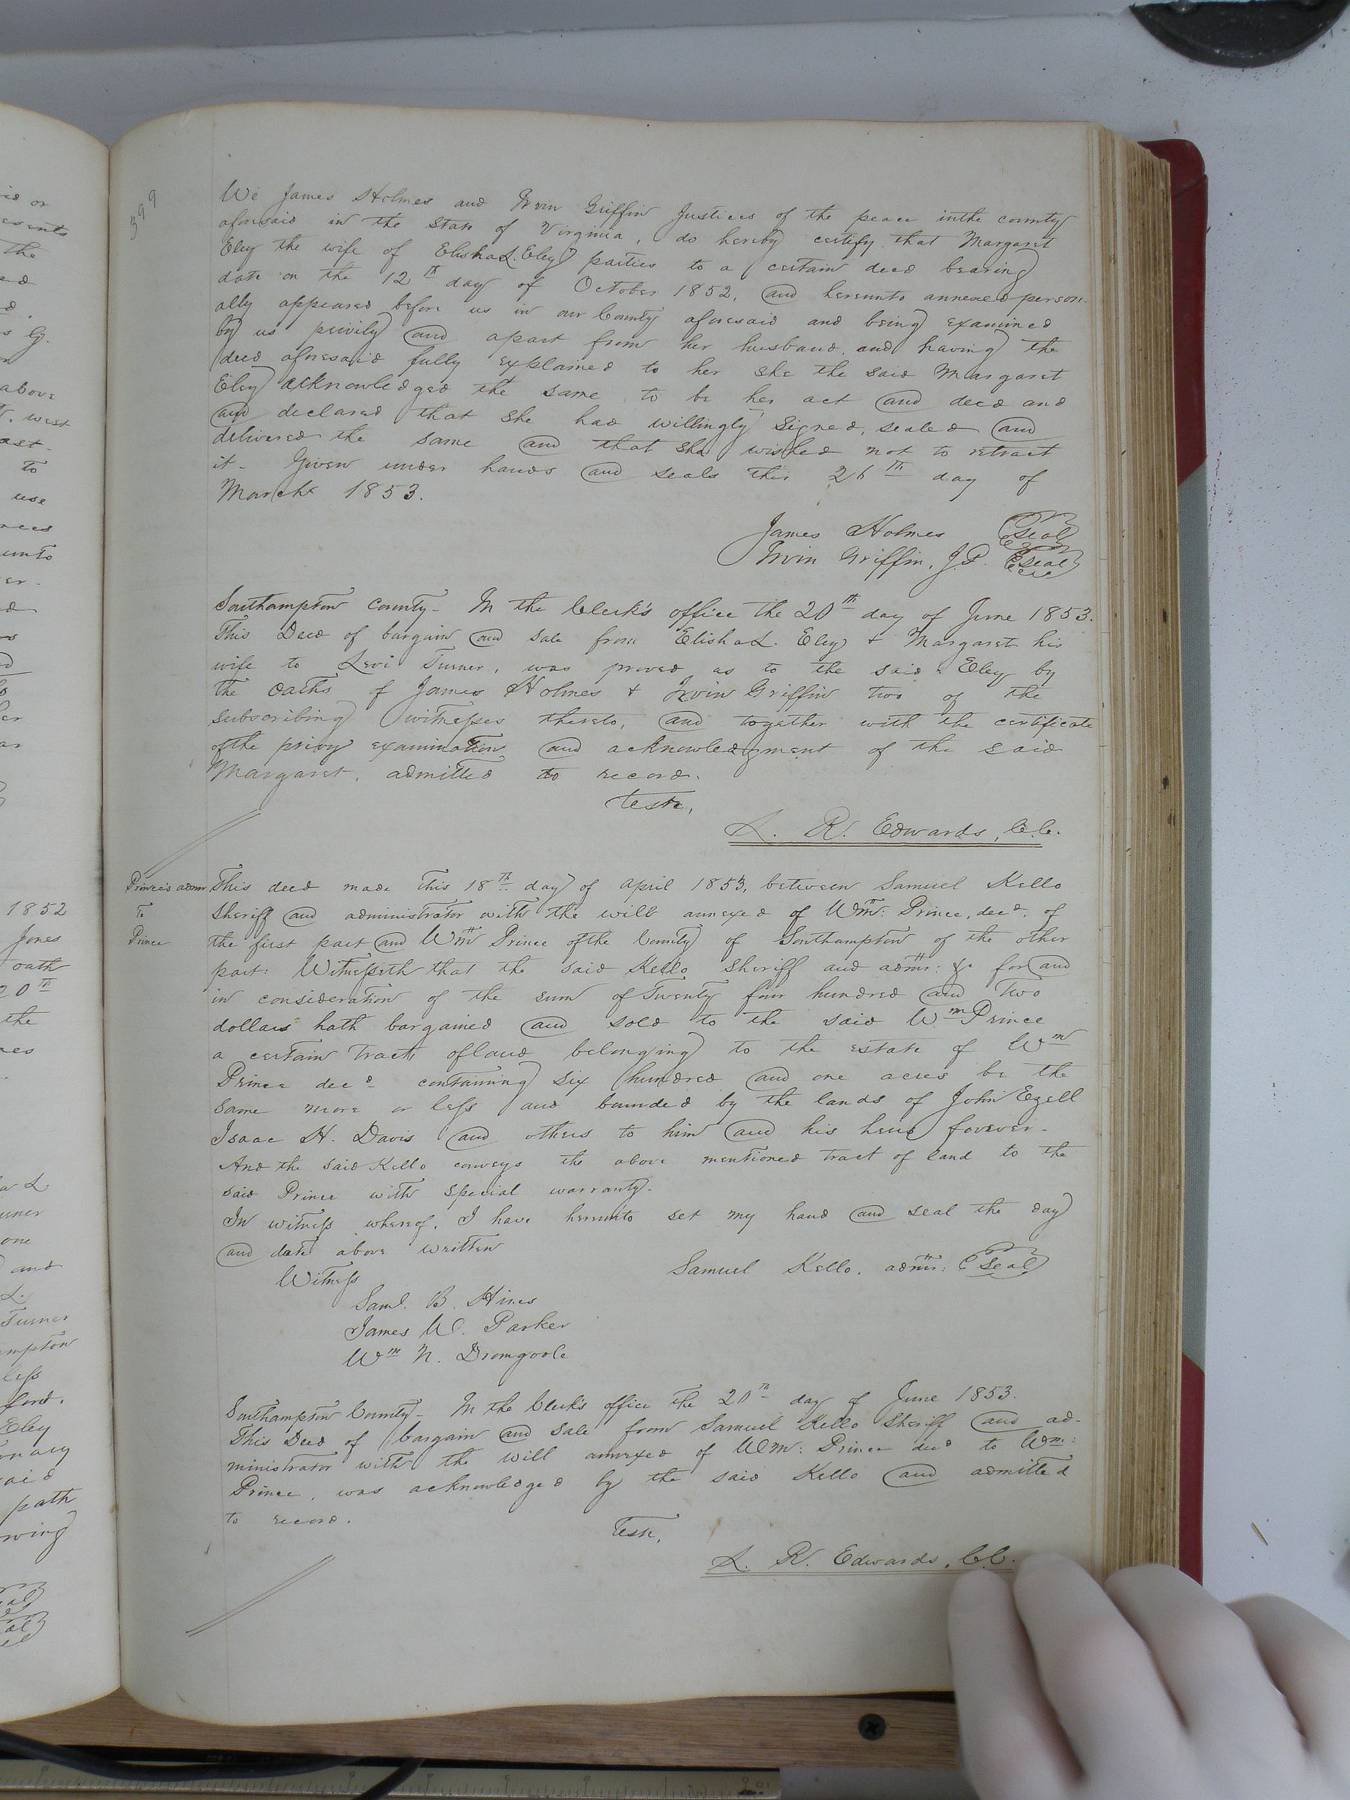 399
We James Holmes and Irvin Griffin Justices of the peace in the county
aforesaid in the State of Virginia, do hereby certify that Margaret
Eley the wife of Elisha L. Eley parties to a certain deed bearing
date on the 12th day of October 1852, and hereunto annexed person-
ally appeared before us in our County aforesaid and being examined
by us privily and apart from her husband, and having the
deed aforesaid fully explained to her she the said Margaret
Eley acknowledged the same to be her act and deed and
and declared that she had willingly signed, sealed and
delivered the same and that she wished not to retract
it. Given under hands and seals this 26th day of
March 1853.
James Holmes Seal
Irvin Griffin, J.P. Seal
Southampton County- In the Clerk's office the 20th day of June 1853.
This Deed of bargain and sale from Elisha L. Eley & Margaret his
wife to Levi Turner, was proved as to the said Eley by
the oaths of James Holmes & Irvin Griffin two of the
subscribing witnesses thereto, and together with the certificate
of the privy examination and acknowledgment of the said
Margaret, admitted to record.
Teste,
L. R. Edwards, C.C.
Prince's admr
To
Prince
This deed made this 18th day of April 1853, between Samuel Kello
Sheriff and administrator with the will annexed of Wm: Prince, decd. of
the first part and Wm Prince of the County of Southampton of the other
part: Witnesseth that the said Kello Sheriff and admr: &c for and
in consideration of the sum of Twenty four hundred and Two
dollars hath bargained and sold to the said Wm Prince
a certain tract of land belonging to the estate of Wm
Prince decd containing six hundred and one acres be the
same more or less and bounded by the lands of John Ezell
Isaac H. Davis and others to him and his heirs forever.
And the said Kello conveys the above mentioned tract of land to the
said Prince with special warranty.
In witness whereof, I have hereunto set my hand and seal the day
and date above written
Samuel Kello, admr: Seal
Witness
Saml. B. Hines
James W. Parker
Wm N. Dromgoole
Southampton County- In the Clerk's office the 20th day of June 1853.
This Deed of bargain and sale from Samuel Kello Sheriff and ad-
ministrator with the will annexed of Wm: Prince decd to Wm:
Prince, was acknowledged by the said Kello and admitted
to record.
Teste,
L. R. Edwards, C.C.